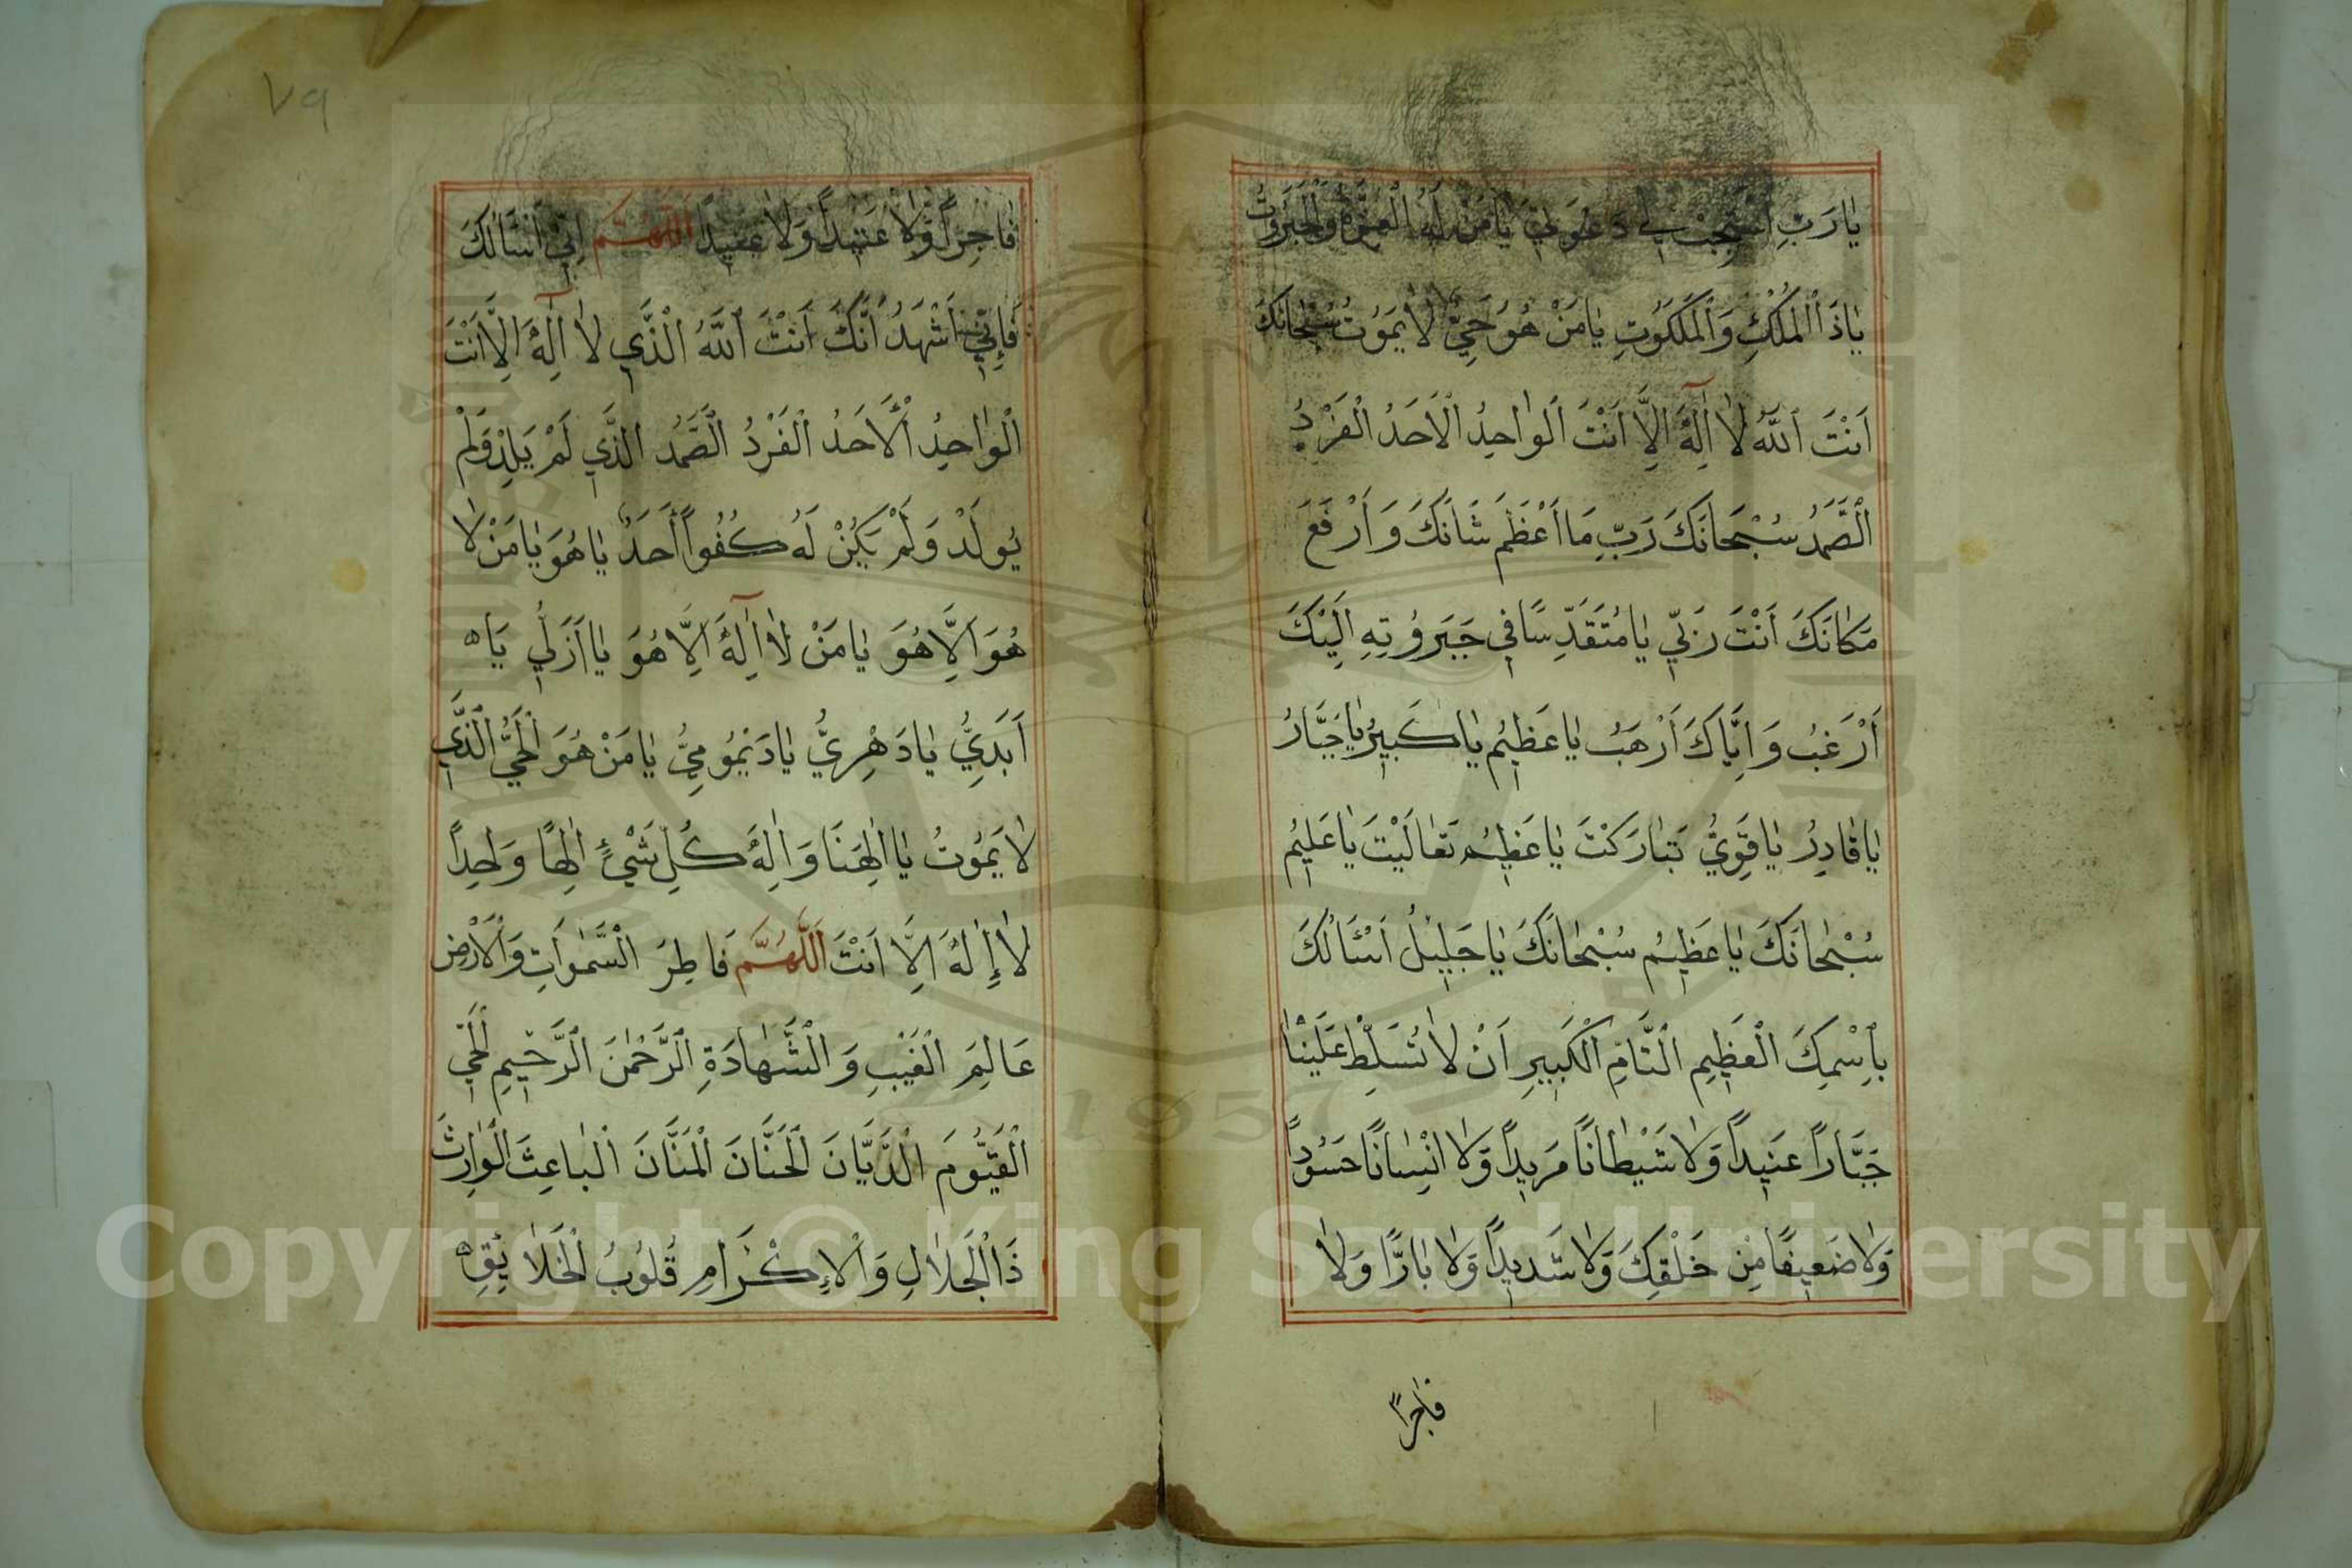 يَا رَبِّ اسْتَجِبْ لِي دَعْوَتِي يَا مَنْ لَهُ الْعِزَّةُ وَالْجَبَرُوتُ
يَا ذَا الْمُلْكِ وَالْمَلَكُوتِ يَا مَنْ هُوَ حَيٌّ لَا يَمُوتُ سُبْحَانَكَ
اَنْتَ اللهُ لَا اِلٰهَ اِلَّا اَنْتَ الْوَاحِدُ الْاَحَدُ الْفَرْدُ
الصَّمَدُ سُبْحَانَكَ رَبِّ مَا اَعْظَمَ شَانَكَ وَاَرْفَعَ
مَكَانَكَ اَنْتَ رَبِّي يَا مُتَقَدِّسًا فِي جَبَرُوتِهِ اِلَيْكَ
اَرْغَبُ وَاِيَّاكَ اَرْهَبُ يَا عَظِيمُ يَا كَبِيرُ يَا جَبَّارُ
يَا قَادِرُ يَا قَوِيُّ تَبَارَكْتَ يَا عَظِيمُ تَعَالَيْتَ يَا عَلِيمُ
سُبْحَانَكَ يَا عَظِيمُ سُبْحَانَكَ يَا جَلِيلُ اَسْئَالُكَ
بِاِسْمِكَ الْعَظِيمِ التَّامِّ الْكَبِيرِ اَنْ لَا تُسَلِّطْ عَلَيْنَا
جَبَّاراً عَنِيداً وَلَا شَيْطَانًا مَرِيداً وَلَا انْسَانًا حَسُوداً
وَلَا ضَعِيفًا مِنْ خَلْقِكَ وَلَا شَدِيداً وَلَا بَارًّا وَلَا
فَاجِراً
فَاجِراً وَلَا عَتِيداً وَلَا عَنِيداً اَللّٰهُمَّ اِنِّي اَسْئَالُكَ
فَاِنِّي اَشْهَدُ اَنَّكَ اَنْتَ اللهُ الَّذِي لَا اِلٰهَ اِلَّا اَنْتَ
الْوَاحِدُ الْاَحَدُ الْفَرْدُ الصَّمَدُ الَّذِي لَمْ يَلِدْ وَلَمْ
يُولَدْ وَلَمْ يَكُنْ لَهُ كُفُواً اَحَدٌ يَا هُوَ يَا مَنْ لَا
هُوَ اِلَّا هُوَ يَا مَنْ لَا اِلٰهَ اِلَّا هُوَ يَا اَزَلِيُّ يَا
اَبَدِيُّ يَا دَهْرِيُّ يَا دَيْمُومِيُّ يَا مَنْ هُوَ الْحَيُّ الَّذِي
لَا يَمُوتُ يَا اِلٰهَنَا وَاِلٰهَ كُلِّ شَيْءٍ اِلٰهًا وَاحِداً
لَا إِلٰهَ اِلَّا اَنْتَ اَللّٰهُمَّ فَاطِرَ السَّمٰوَاتِ وَالْاَرْضِ
عَالِمَ الْغَيْبِ وَالشَّهَادَةِ الرَّحْمٰنَ الرَّحِيمِ الْحَيَّ
الْقَيُّومَ الدَّيَّانَ الْحَنَّانَ الْمَنَّانَ الْبَاعِثَ الْوَارِثَ
ذَا الْجَلَالِ وَالْاِكْرَامِ قُلُوبُ الْخَلَائِقِ
٧٩
1957
Copyright © King Saud University